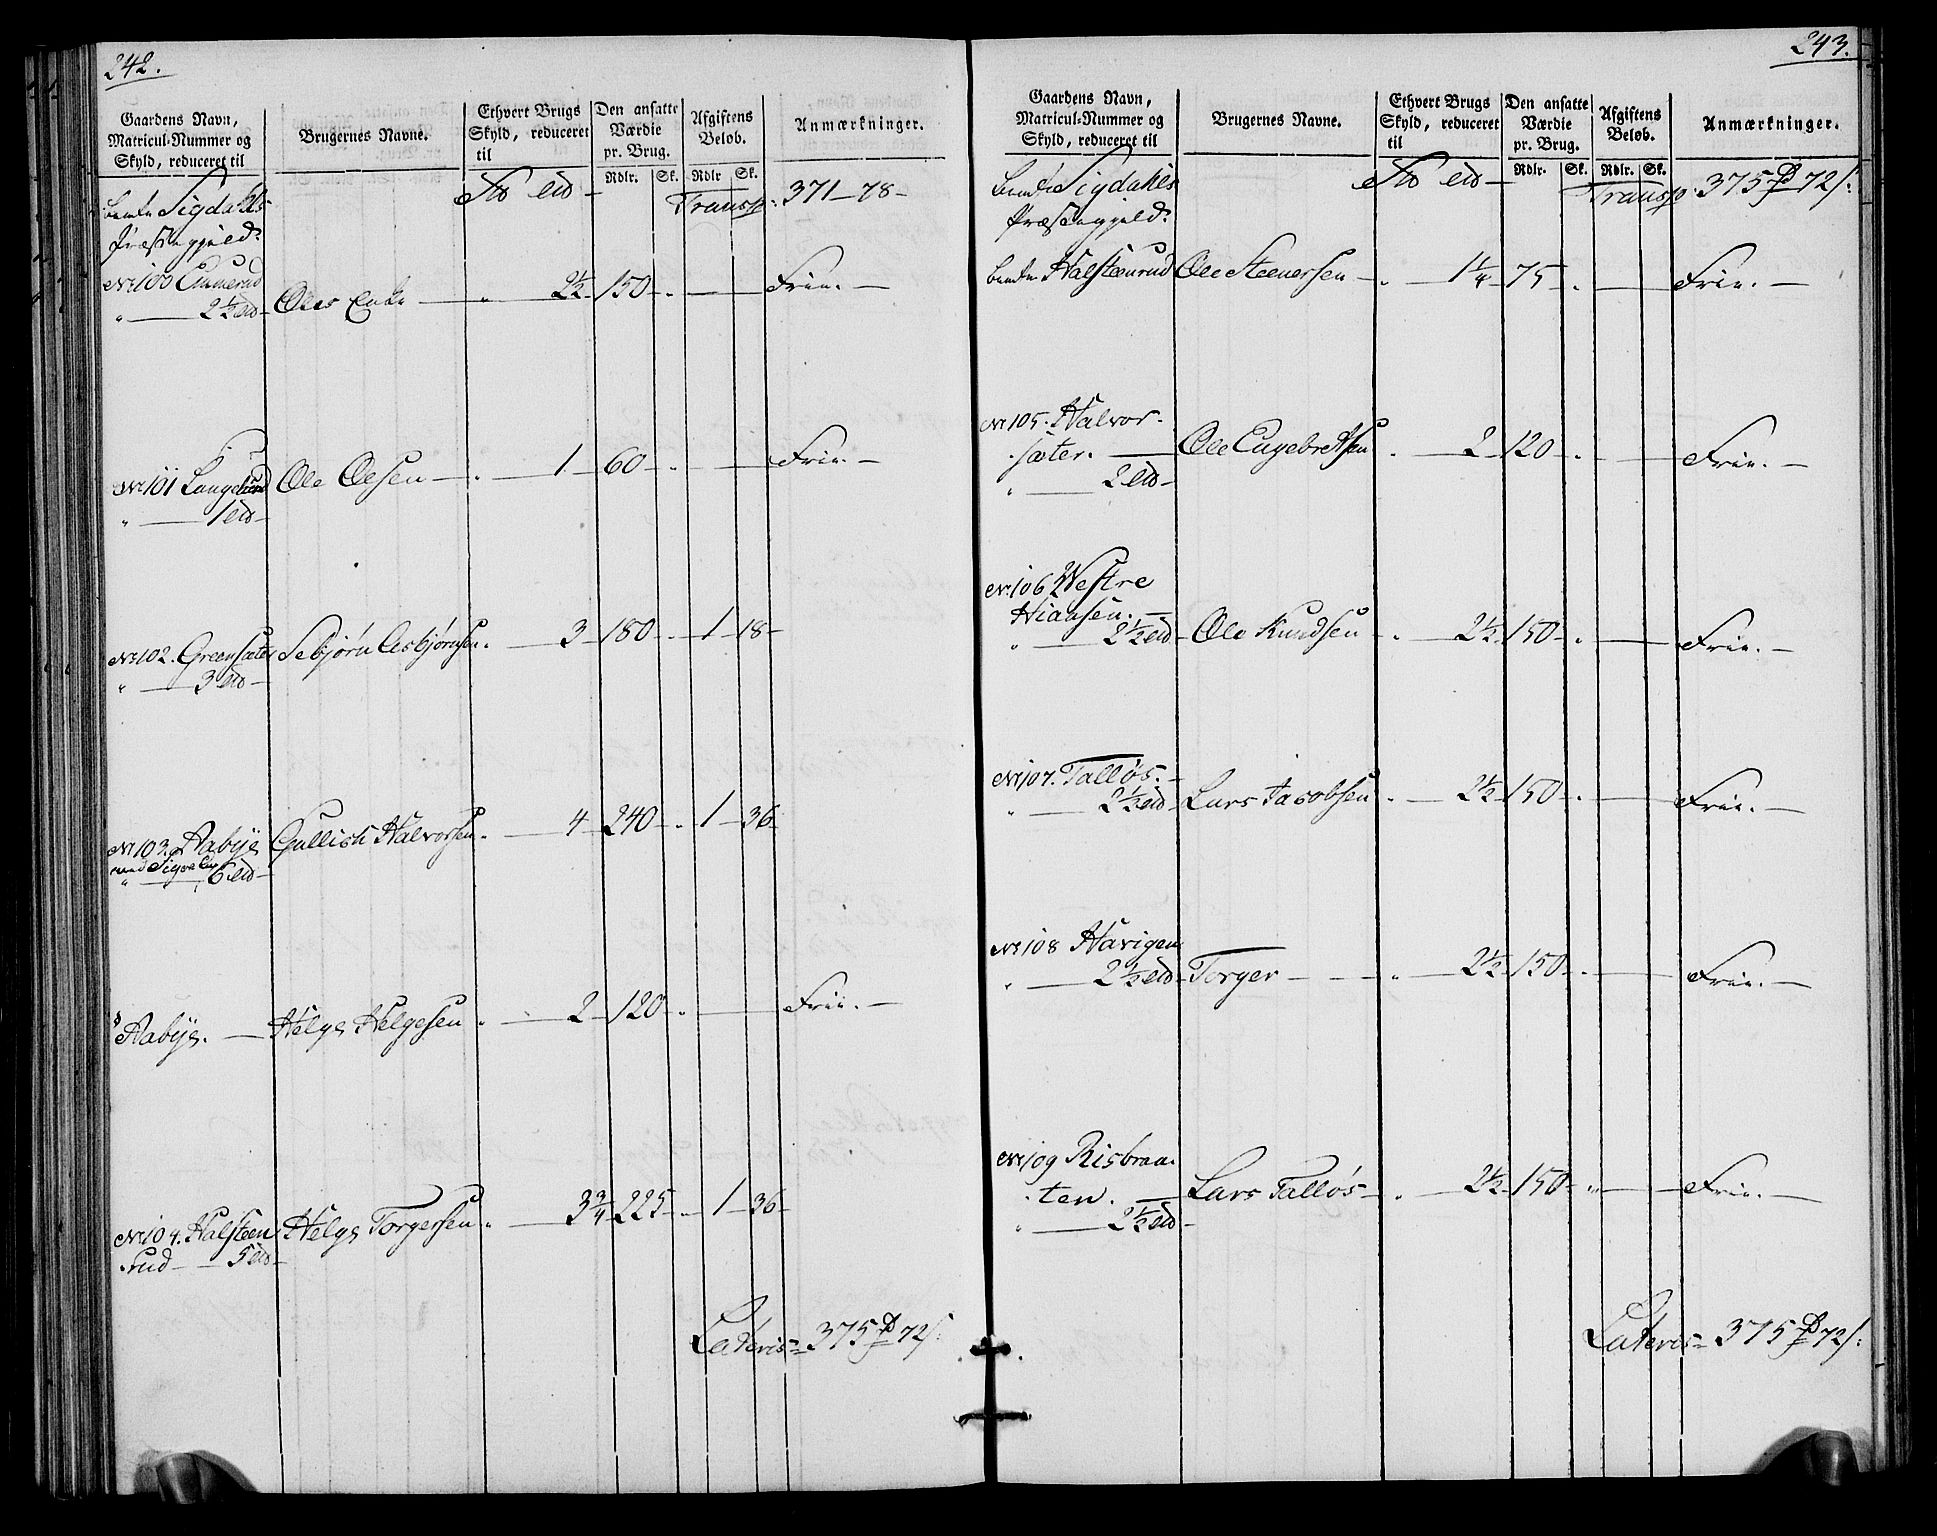 242.
Gaardens Navn,
Matricul-Nummer og
Skyld, reduceret til
Brugernes Navne.
Ethvert Brugs
Skyld, reduceret
til
Den ansatte
Værdie
pr. Brug.
Afgiftens
Beløb.
Anmærkninger.
Rdlr. Sk. Rdlr Sk.
Sigdahls
Præstegjeld:
Transp: 371 - 78 -
No 100
" 2½ Oles Enke " 2½ 150 - " Frie. -
No 101 Langelund Ole Olsen " 1 60 - " Frie. -
" 1
No 102. Greensæter Sebjørn Asbjørnsen. 3 180 - 1 - 18 -
" 3
No 103. Aabye Gullich Halvorsen. 4 240 - 1 - 36 -
med
" 6
Aabye. Helge Helgesen " 2 120 - " Frie. -
No 104. Halsteen Helge Torgersen " 3¾ 225 - 1 - 36 -
rud - 5
Lateris = 375 72
243.
Gaardens Navn,
Matricul-Nummer og
Skyld, reduceret til
Brugernes Navne.
Ethvert Brugs
Skyld, reduceret
til
Den ansatte
Værdie
pr. Brug.
Afgiftens
Beløb.
Anmærkninger.
Rdlr. Sk. Rdlr. Sk.
Sigdahls
Præstegjeld:
Transp: 375 72
Halsteenrud Ole Steenersen - " 1¼ 75 - " Frie. -
No 105. Halvor-
sæter. Ole Engebretsen " 2 120 - " Frie. -
" 2
No 106 Westre
Hiansen. -
" 2½ Ole Knudsen - " 2½ 150 - " Frie. -
No 107. Talløs. -
" 2½ Lars Jacobsen " 2½ 150 - " Frie. -
No 108 Havigen
" 2½ Torger - " 2½ 150 - " Frie. -
No 109 Risbraa-
ten. Lars Talløs - " 2½ 150 - " Frie. -
" 2½
Lateris = 375 72